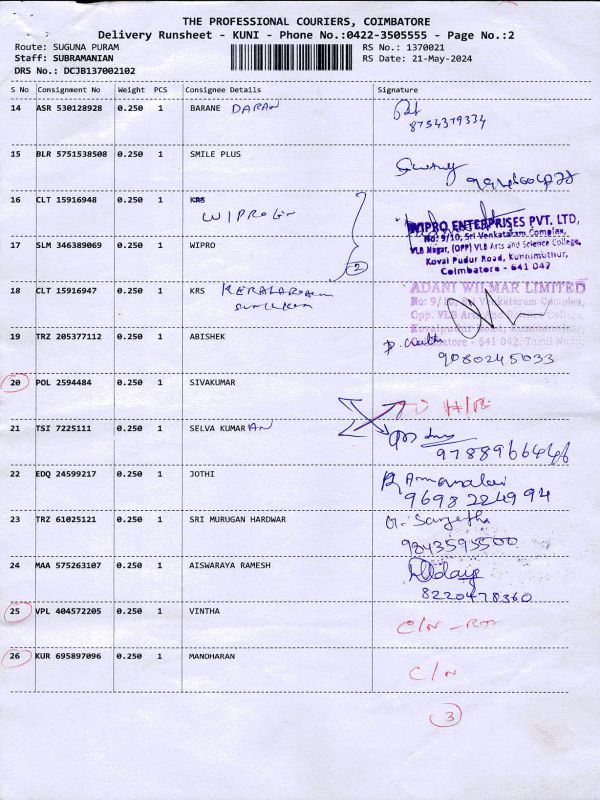 THE PROFESSIONAL COURIERS, COIMBATORE
Delivery Runsheet - KUNI - Phone No.:0422-3505555 - Page No.:2
Route: SUGUNA PURAM RS No.: 1370021
Staff: SUBRAMANIAN RS Date: 21-May-2024
DRS No.: DCJB137002102
S No Consignment No Weight PCS Consignee Details Signature
14 ASR 530128928 0.250 1 BARANE DARAN
8754379334
15 BLR 5751538508 0.250 1 SMILE PLUS
16 CLT 15916948 0.250 1 KRS
WIPRO
WIPRO ENTERPRISES PVT. LTD,
No: 9/10, Sri Venkatram Complex,
VLB Nagar, (OPP) VLB Arts and Science College,
Kovai Pudur Road, Kunnimuthur,
Coimbatore - 641 042
17 SLM 346389069 0.250 1 WIPRO
2
18 CLT 15916947 0.250 1 KRS
ADANI WILMAR LIMITED
No: 9/10, Sri Venkataram Complex,
Opp. VLB Arts
641 042. Tamil Nadu
19 TRZ 205377112 0.250 1 ABISHEK
9080245033
20 POL 2594484 0.250 1 SIVAKUMAR
21 TSI 7225111 0.250 1 SELVA KUMAR AN
9788966466
22 EDQ 24599217 0.250 1 JOTHI
9698224994
23 TRZ 61025121 0.250 1 SRI MURUGAN HARDWAR
G. Sangetha
9843595500
24 MAA 575263107 0.250 1 AISWARAYA RAMESH
8220478360
25 VPL 404572205 0.250 1 VINTHA
C/N
26 KUR 695897096 0.250 1 MANOHARAN
C/N
3